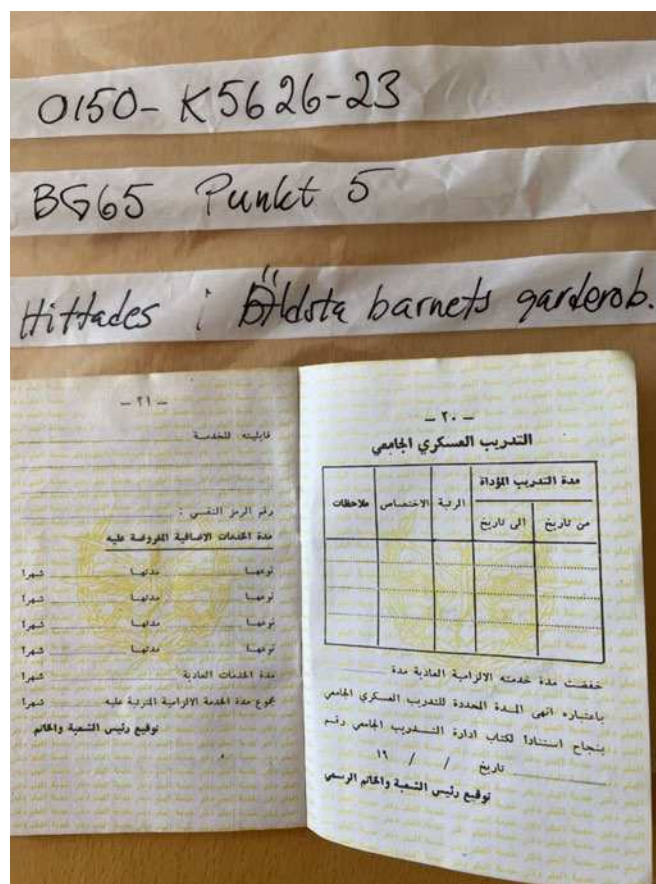 0150-K5626-23
BG65 Punkt 5
Hittades i Äldsta barnets garderob.
— ٢٠ —
التدريب العسكري الجامعي
مدة التدريب المؤداة
الرتبة
الاختصاص
ملاحظات
من تاريخ
الى تاريخ
خفضت مدة خدمته الالزامية العادية مدة
باعتباره انهى المدة المحددة للتدريب العسكري الجامعي
بنجاح استناداً لكتاب ادارة التدريب الجامعي رقم
تاريخ / / ١٩
توقيع رئيس الشعبة والخاتم الرسمي
— ٢١ —
قابليته للخدمة
رقم الرمز النفسي :
مدة الخدمات الاضافية المفروضة عليه
نوعها مدتها شهرا
نوعها مدتها شهرا
نوعها مدتها شهرا
نوعها مدتها شهرا
مدة الخدمات العادية شهرا
مجموع مدة الخدمة الالزامية المترتبة عليه شهرا
توقيع رئيس الشعبة والخاتم